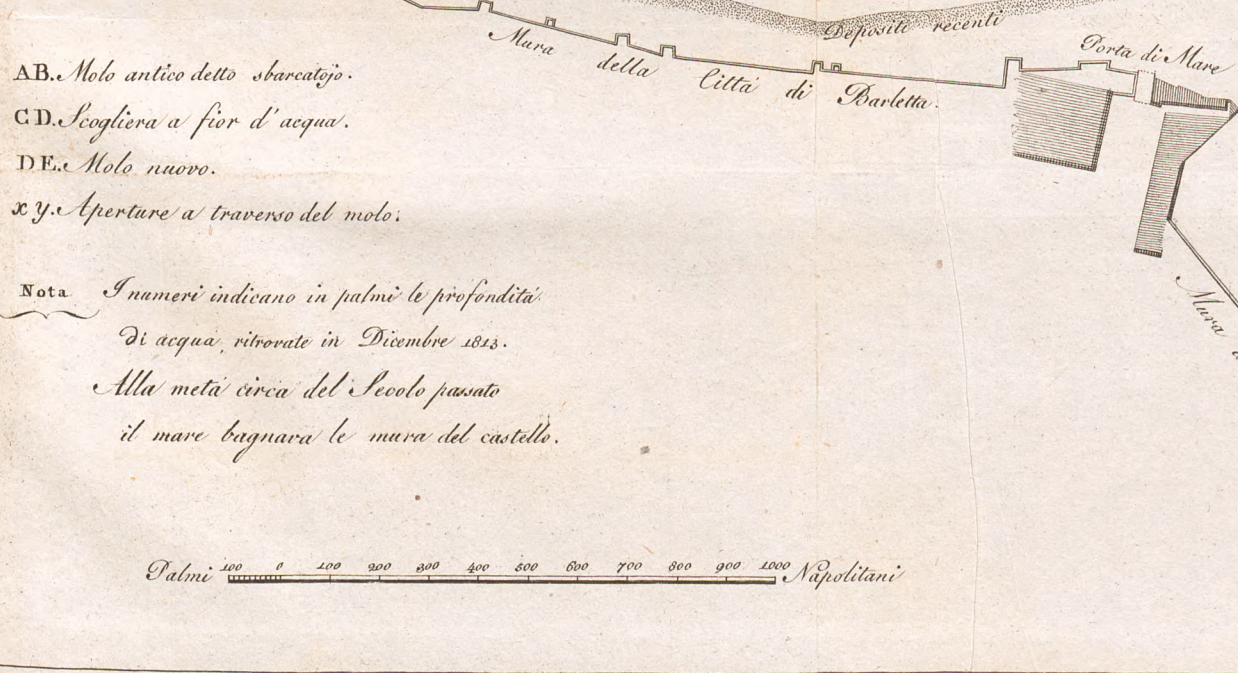 Depositi recenti
Porta di Mare
Mura della Città di Barletta.
AB. Molo antico detto sbarcatojo.
CD. Scogliera a fior d'acqua.
DE. Molo nuovo.
x y. Aperture a traverso del molo.
Mura
Nota I numeri indicano in palmi le profondità
di acqua, ritrovate in Dicembre 1813.
Alla metà circa del Secolo passato
il mare bagnava le mura del castello.
Palmi 100 0 100 200 300 400 500 600 700 800 900 1000 Napolitani